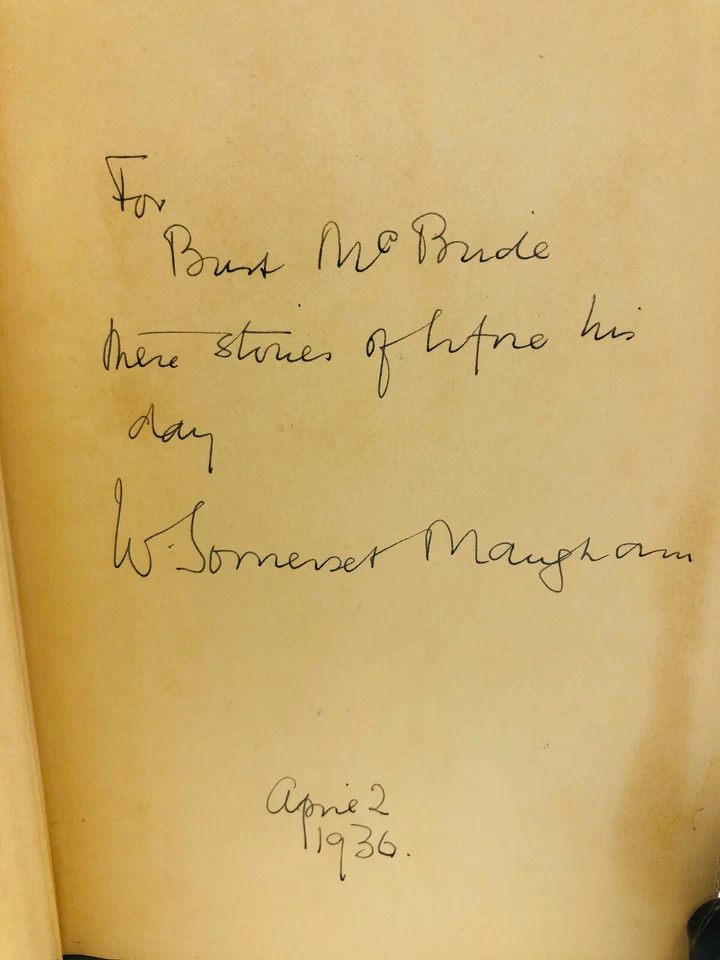 For
Burt McBride
these stories of before his
day
W. Somerset Maugham
April 2
1936.